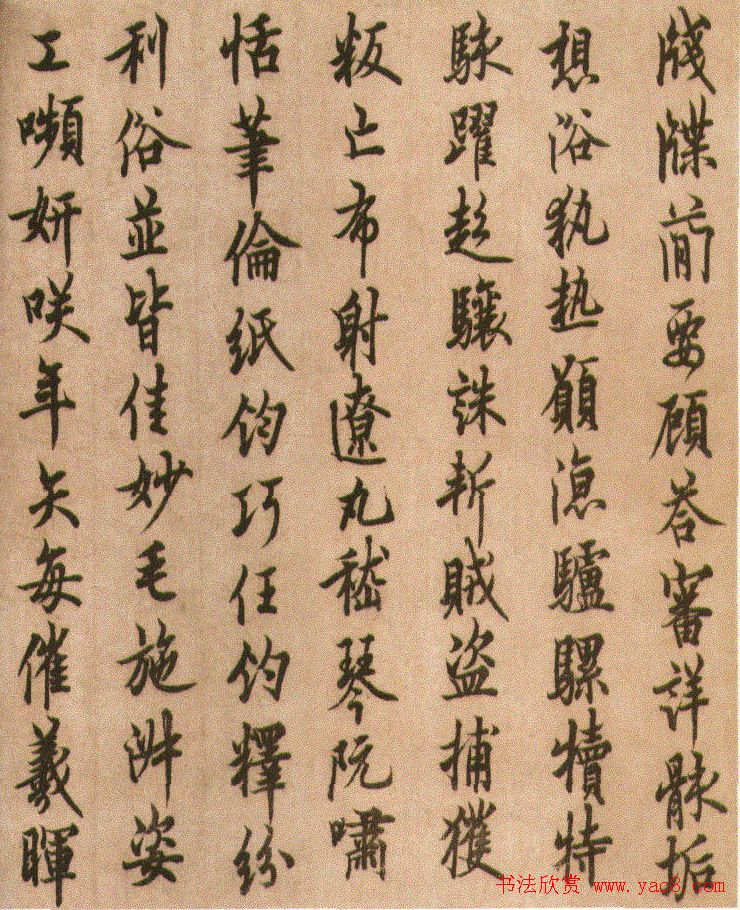 牋牒簡要顧荅審詳骸垢
想浴執熱願涼驢騾犢特
駭躍超驤誅斬賊盜捕獲
叛亡布射遼丸嵇琴阮嘯
恬筆倫紙鈞巧任鈞釋紛
利俗並皆佳妙毛施淑姿
工嚬妍咲年矢每催羲暉
书法欣赏 www.yac8.com